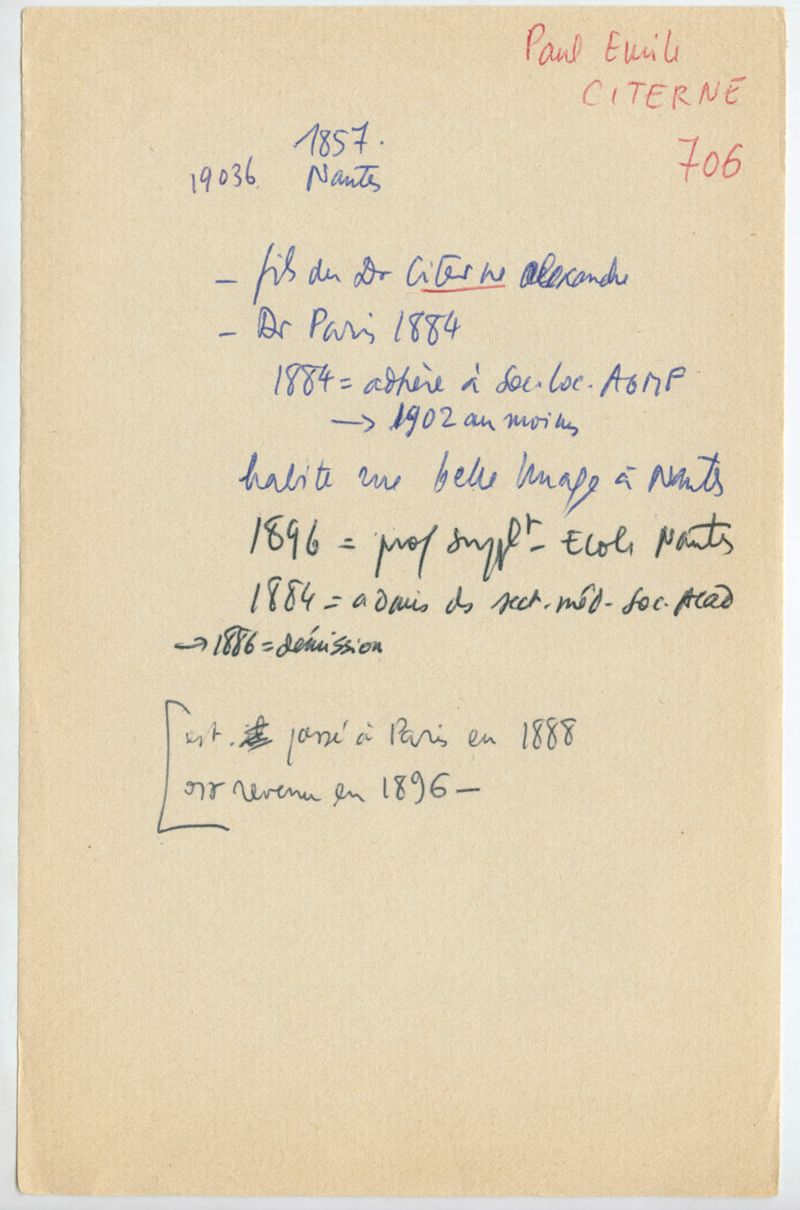 Paul Emile
CITERNE
706
1857.
19036 Nantes
- fils du Dr Citerne alexandre
- Dr Paris 1884
1884 = adhère à Soc. loc. AGMF
→ 1902 au moins
habite rue belle Image à Nantes
1896 = prof supplt - Ecole Nantes
1884 = admis ds sect. méd. Soc. Acad
→ 1886 = démission
est passé à Paris en 1888
revenu en 1896 -